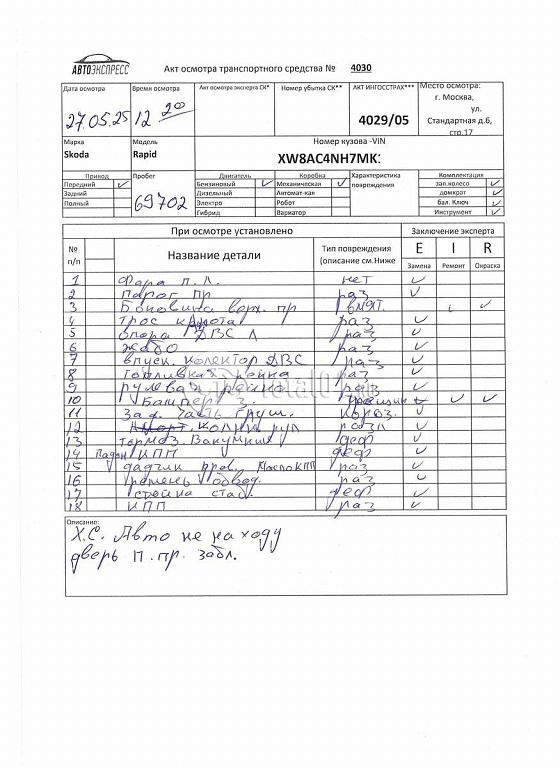 АВТОЭКСПРЕСС
Акт осмотра транспортного средства № 4030
Дата осмотра Время осмотра Акт осмотра эксперта СК* Номер убытка СК** АКТ ИНГОССТРАХ*** Место осмотра:
27.05.25 12 20 4029/05 г. Москва,
ул.
Стандартная д.6,
стр.17
Марка Модель Номер кузова -VIN
Skoda Rapid XW8AC4NH7MK
Привод Пробег Двигатель Коробка Характеристика Комплектация
Передний ✓ 69702 Бензиновый ✓ Механическая ✓ повреждения зап.колесо ✓
Задний Дизельный Автомат-кая домкрат ✓
Полный Электро Робот бал. Ключ ✓
Гибрид Вариатор Инструмент ✓
При осмотре установлено Заключение эксперта
№ Название детали Тип повреждения E I R
п/п (описание см.Ниже Замена Ремонт Окраска
1 Фара п. л. нет ✓
2 Порог пр раз ✓
3 Боковина верх. пр вмят. ✓
4 Трос раз ✓
5 Опора ДВС л раз ✓
6 жабо раз ✓
7 впуск. колектор ДВС раз ✓
8 топливная раз ✓
9 рулевая рейка раз ✓
10 Бампер з. ✓ ✓
11 Зад. часть глуш. ✓
12 колонк рул разл ✓
13 тормоз. Вакумник деф ✓
14 Поддон КПП деф ✓
15 КПП раз ✓
16 ремень обвод. раз ✓
17 стойка стаб. деф ✓
18 КПП раз ✓
Описание:
Х.С. Авто не на ходу
дверь п.пр. забл.